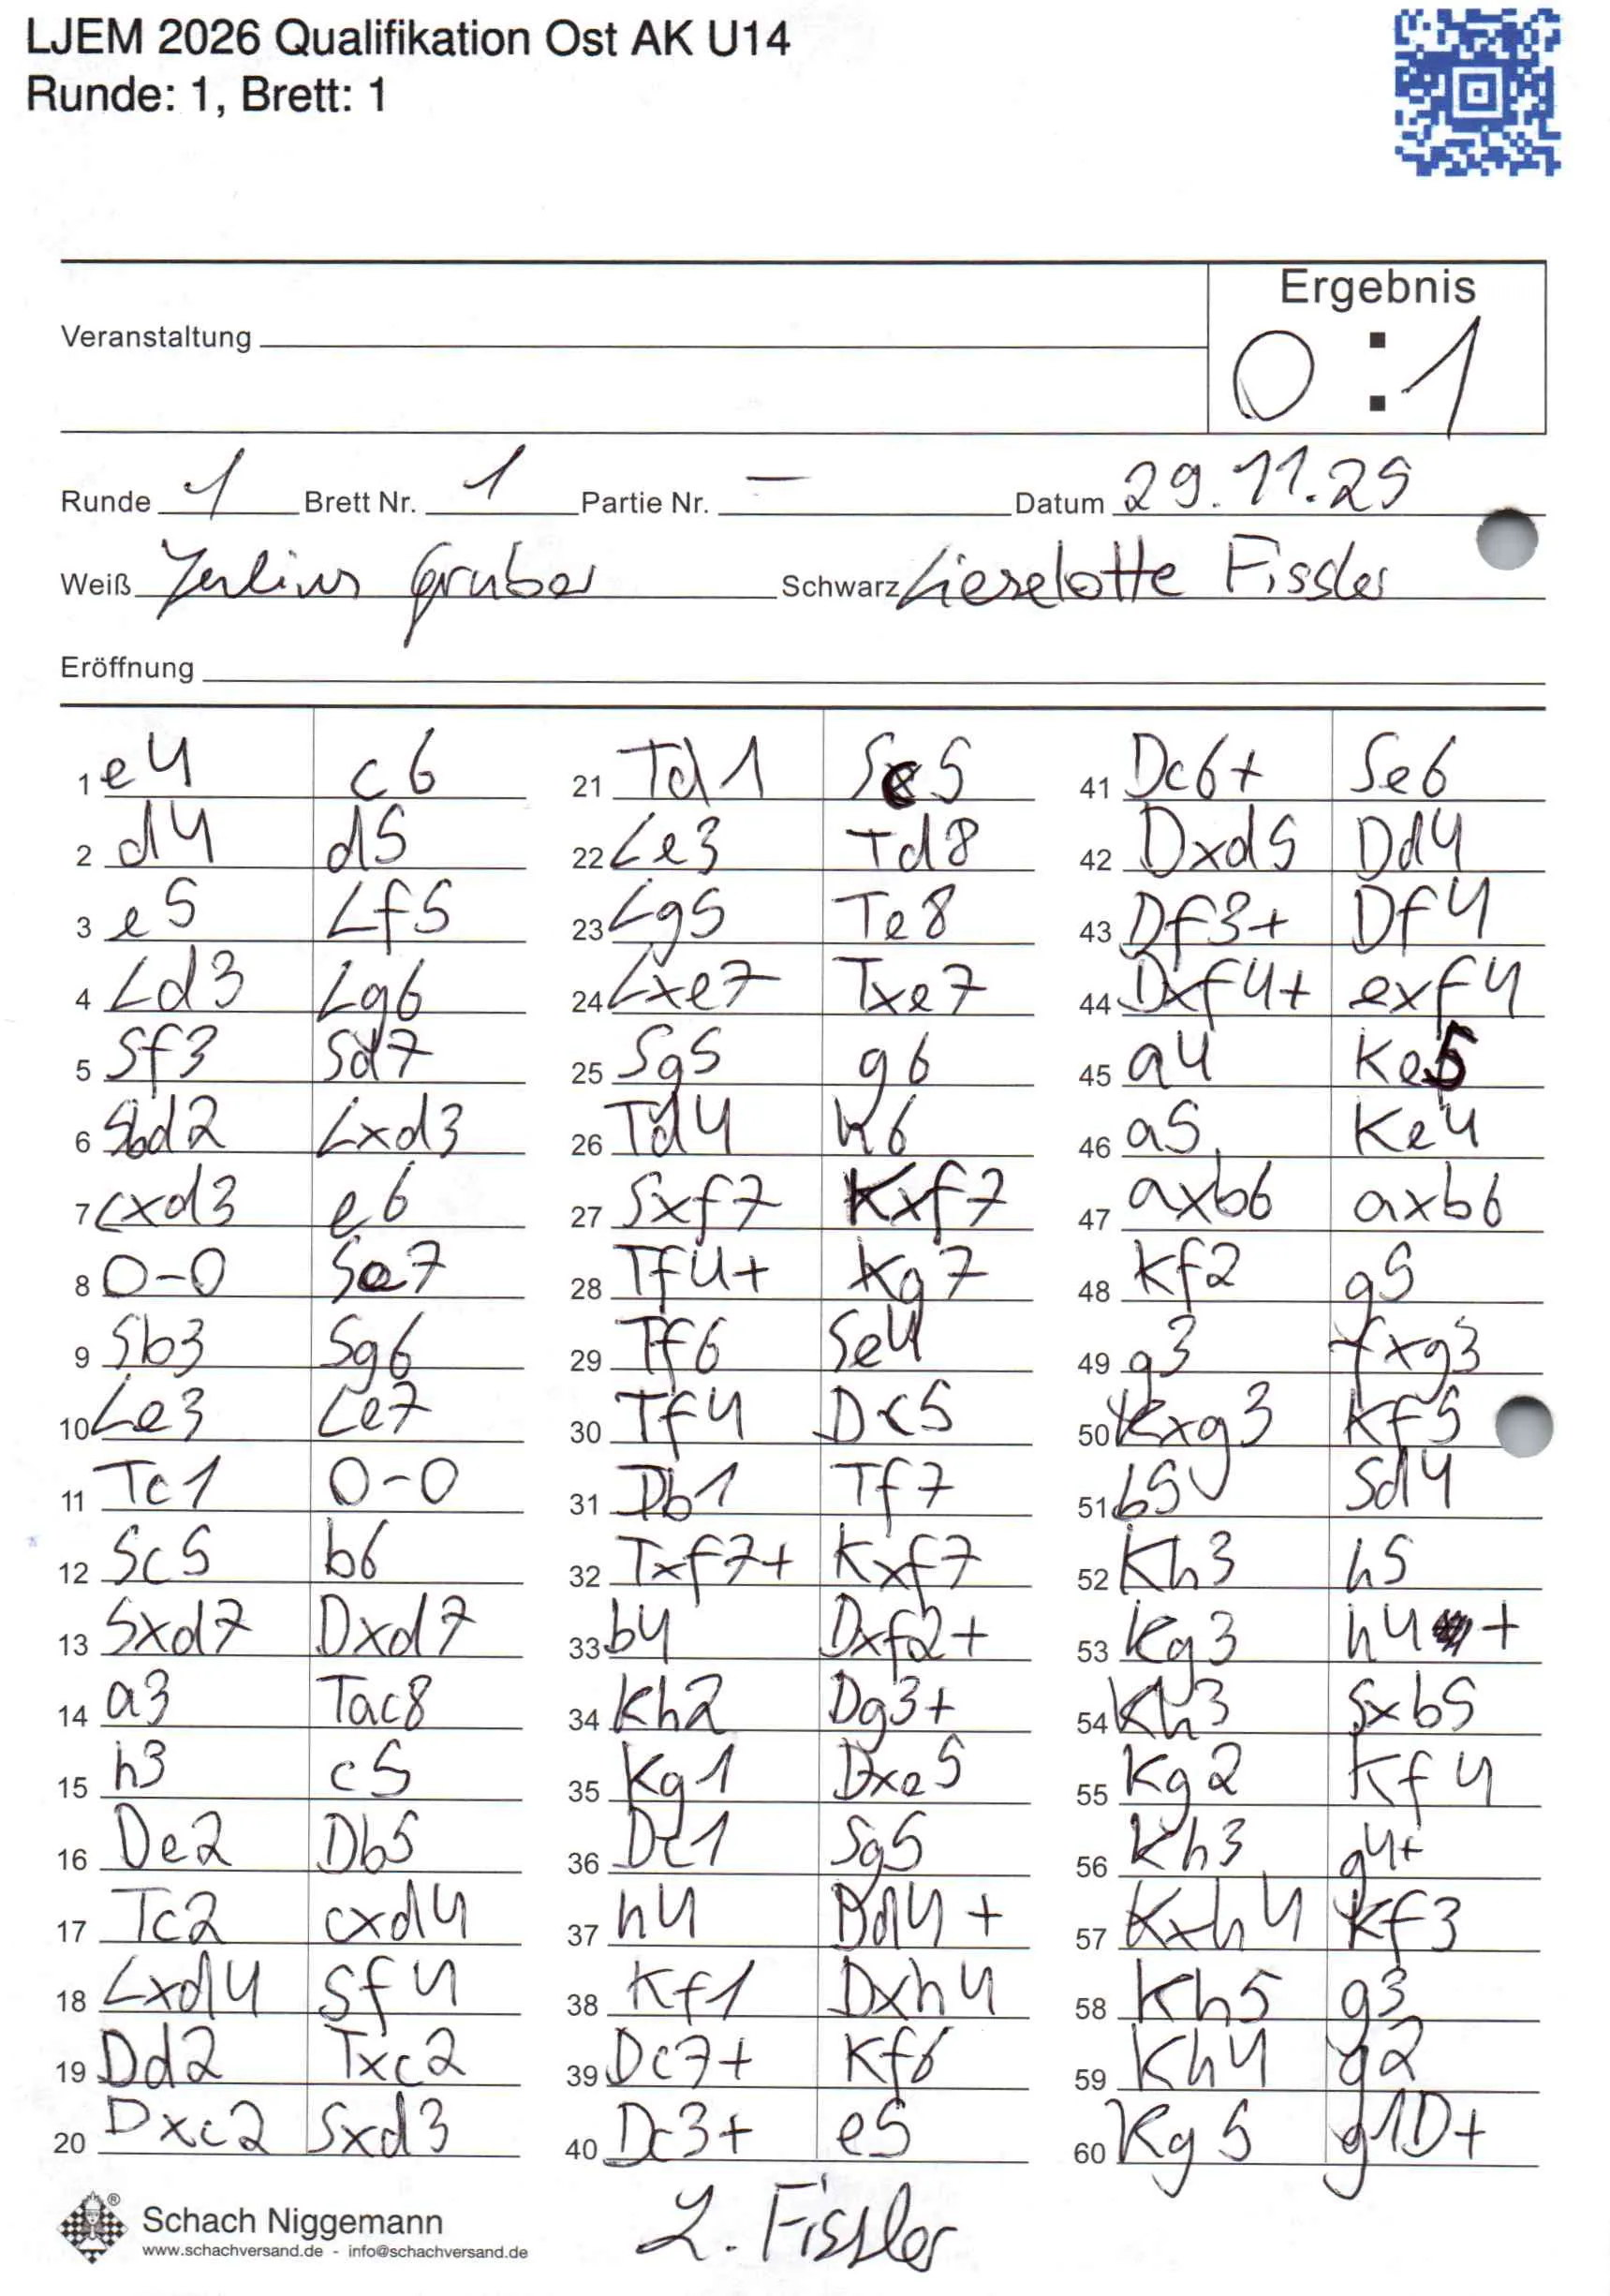 LJEM 2026 Qualifikation Ost AK U14
Runde: 1, Brett: 1
Ergebnis
Veranstaltung
0 : 1
Runde 1 Brett Nr. 1 Partie Nr. — Datum 29.11.25
Weiß Julius Gruber Schwarz Lieselotte Fissler
Eröffnung
1 e4 c6
2 d4 d5
3 e5 Lf5
4 Ld3 Lg6
5 Sf3 Sd7
6 Sbd2 Lxd3
7 cxd3 e6
8 0-0 Se7
9 Sb3 Sg6
10 Le3 Le7
11 Tc1 0-0
12 Sc5 b6
13 Sxd7 Dxd7
14 a3 Tac8
15 h3 c5
16 De2 Db5
17 Tc2 cxd4
18 Lxd4 Sf4
19 Dd2 Txc2
20 Dxc2 Sxd3
21 Td1 Sc5
22 Le3 Td8
23 Lg5 Te8
24 Lxe7 Txe7
25 Sg5 g6
26 Td4 h6
27 Sxf7 Kxf7
28 Tf4+ Kg7
29 Tf6 Se4
30 Tf4 Dc5
31 Db1 Tf7
32 Txf7+ Kxf7
33 b4 Dxf2+
34 Kh2 Dg3+
35 Kg1 Dxe5
36 Dc1 Sg5
37 h4 Dd4+
38 Kf1 Dxh4
39 Dc7+ Kf6
40 Dc3+ e5
41 Dc6+ Se6
42 Dxd5 Dd4
43 Df3+ Df4
44 Dxf4+ exf4
45 a4 Ke5
46 a5 Ke4
47 axb6 axb6
48 Kf2 g5
49 g3 fxg3
50 Kxg3 Kf5
51 b5 Sd4
52 Kh3 h5
53 Kg3 h4+
54 Kh3 Sxb5
55 Kg2 Kf4
56 Kh3 g4+
57 Kxh4 Kf3
58 Kh5 g3
59 Kh4 g2
60 Kg5 g1D+
Schach Niggemann ®
www.schachversand.de - info@schachversand.de
L. Fissler